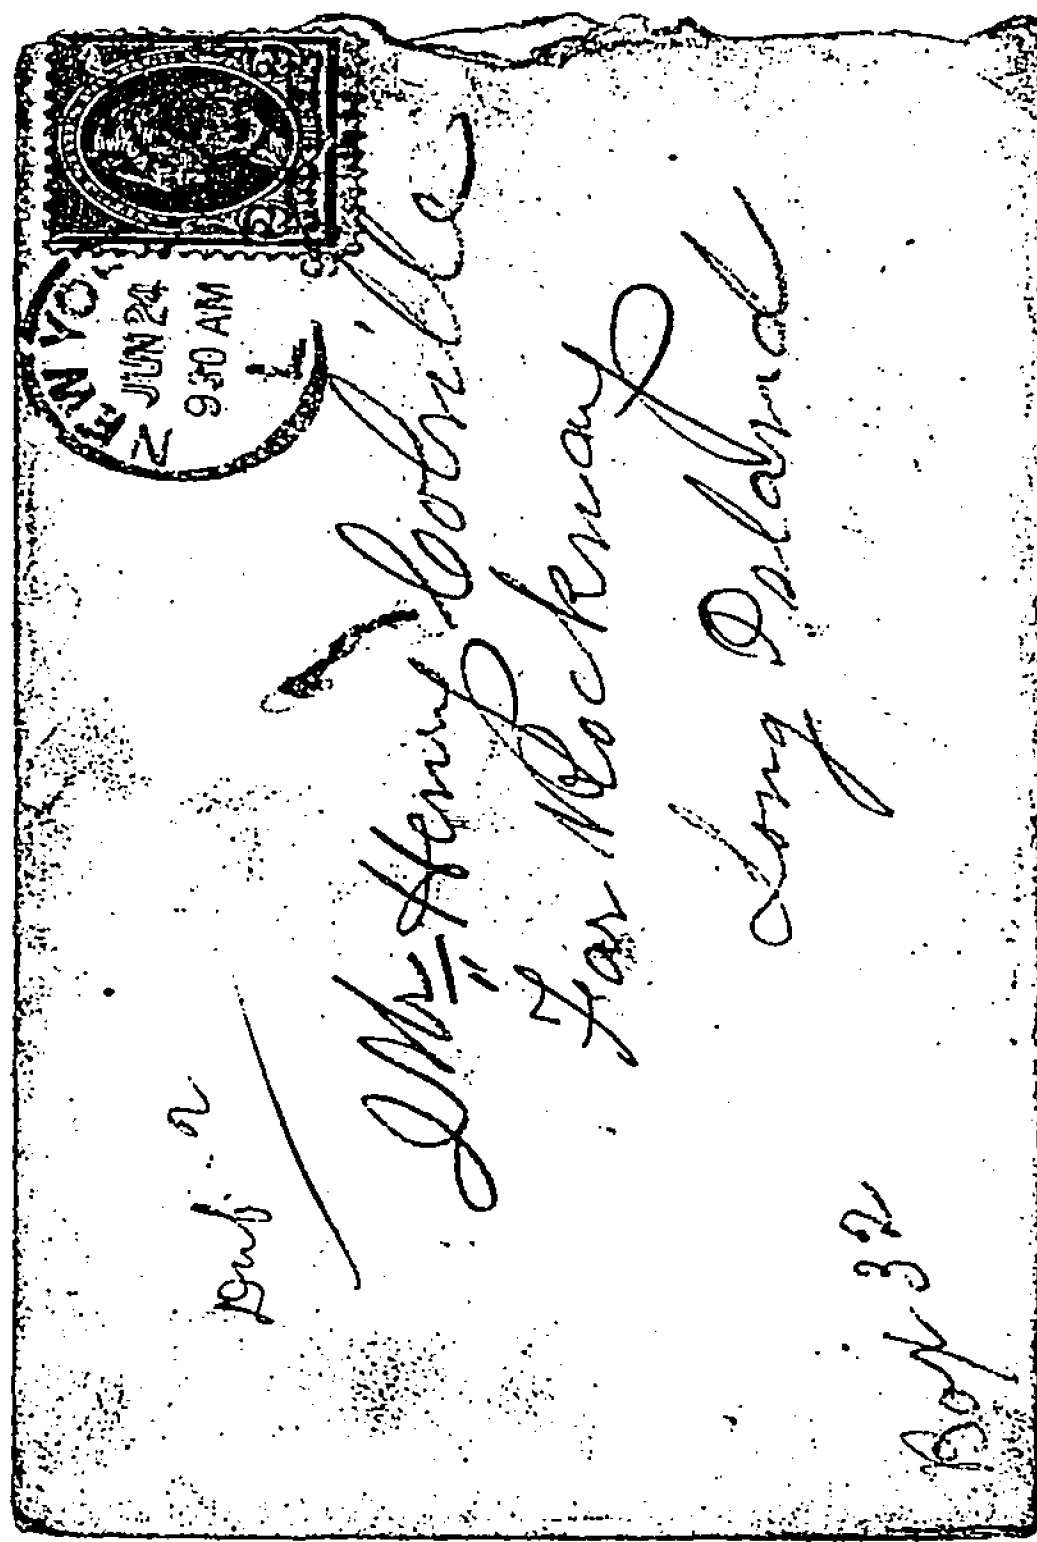 NEW YO
JUN 24
9 30 AM
Mr Henry Colville
Far Rockaway
Long Island
Box 32